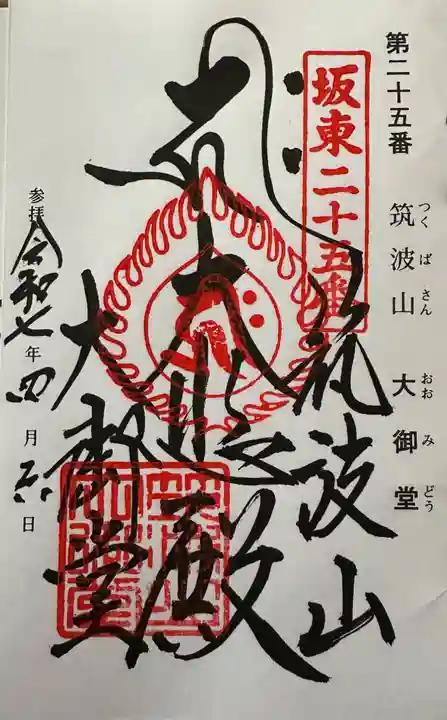 第二十五番 筑波山 大御堂
つくばさん おおみどう
坂東二十五番
筑波山
大悲殿
大御堂
参拝 令和七年四月六日